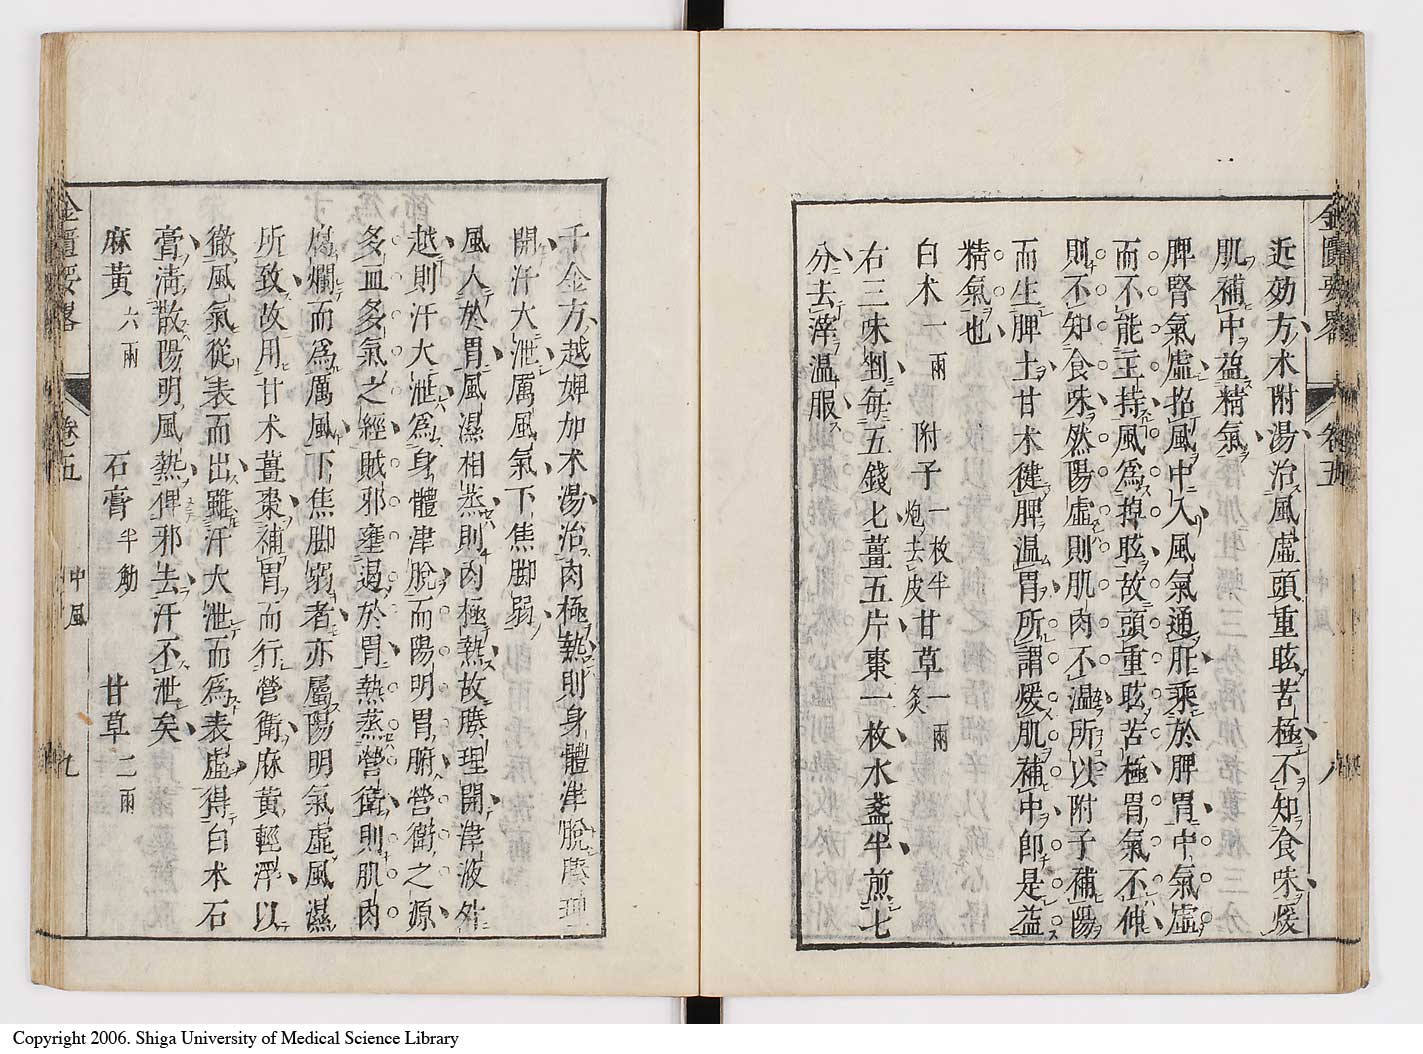 金匱要畧
卷五
八
近効方朮附湯治風虛頭重眩苦極不知食味煖
肌補中益精氣
脾腎氣虛招風中入風氣通肝乘於脾胃中氣虛
而不能主持風爲掉眩故頭重眩苦極胃氣不伸
則不知食味然陽虛則肌肉不溫所以附子補陽
而生脾土甘朮健脾溫胃所謂煖肌補中卽是益
精氣也
白朮一兩 附子一枚半炮去皮 甘草一兩炙
右三味剉每五錢匕薑五片棗一枚水盞半煎七
分去滓溫服
千金方越婢加朮湯治肉極熱則身體津脫腠理
開汗大泄厲風氣下焦脚弱
風入於胃風濕相蒸則肉極熱故腠理開津液外
越則汗大泄爲身體津脫而陽明胃腑營衛之源
多血多氣之經賊邪壅遏於胃熱蒸營衛則肌肉
腐爛而爲厲風下焦脚弱者亦屬陽明氣虛風濕
所致故用甘朮薑棗補胃而行營衛麻黃輕浮以
徹風氣從表而出雖汗大泄而爲表虛得白朮石
膏淸散陽明風熱俾邪去汗不泄矣
麻黃六兩 石膏半觔 甘草二兩
金匱要畧
卷五
中風
九
Copyright 2006. Shiga University of Medical Science Library